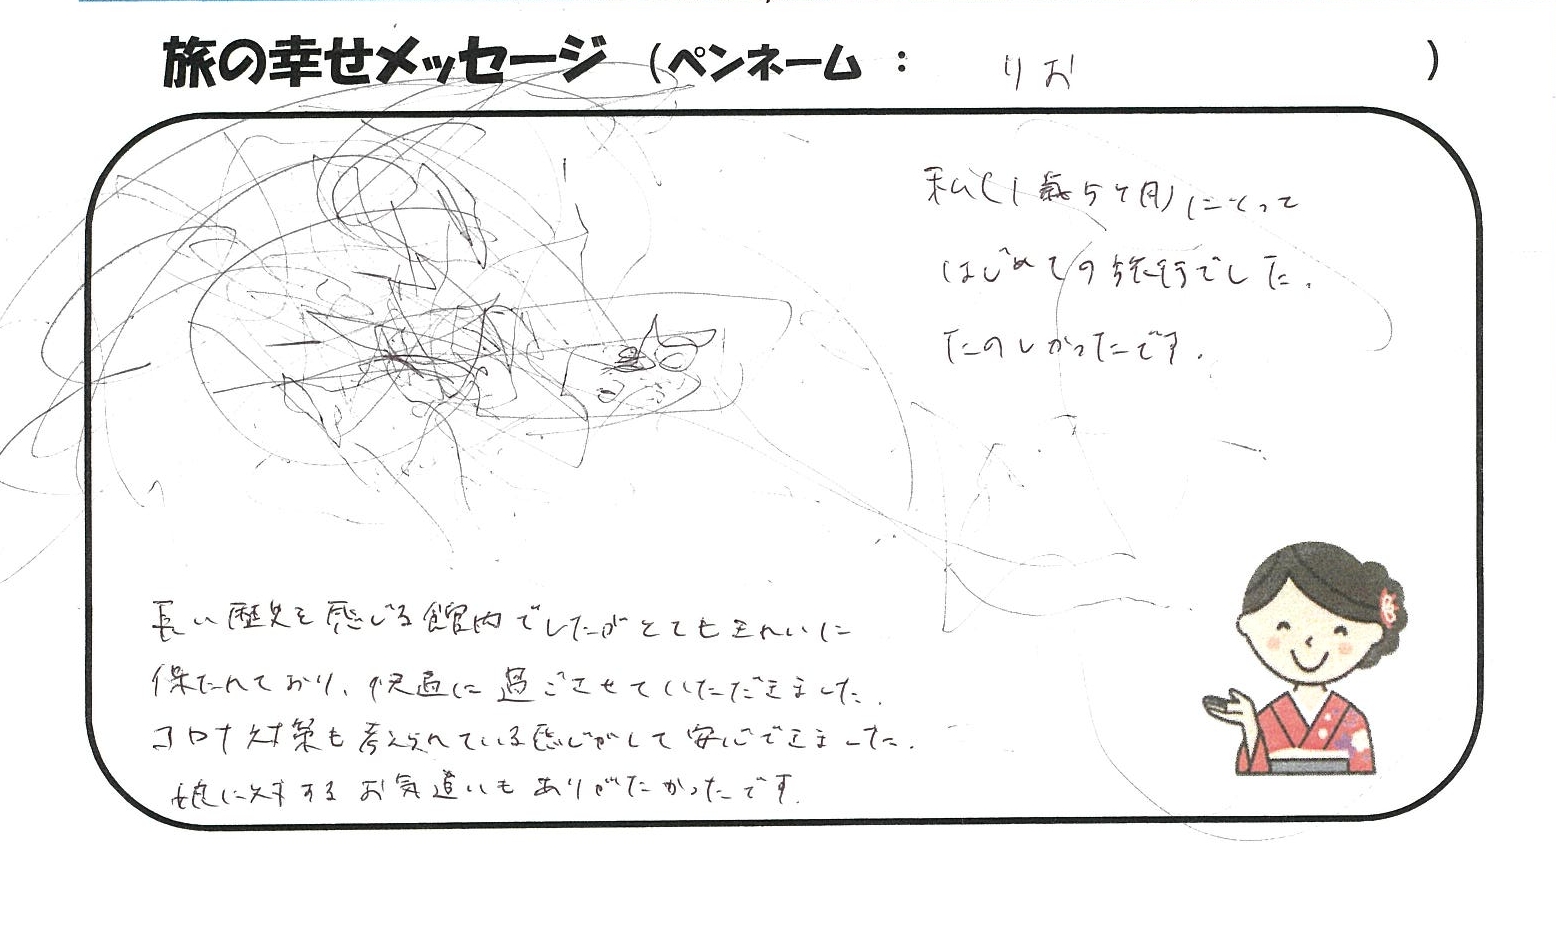 旅の幸せメッセージ (ペンネーム : りお )
私(1歳5ケ月)にとって
はじめての旅行でした.
たのしかったです.
長い歴史を感じる館内でしたがとてもきれいに
保たれており、快適に過ごさせていただきました.
コロナ対策も考えられている感じがして安心できました.
娘に対するお気遣いもありがたかったです.